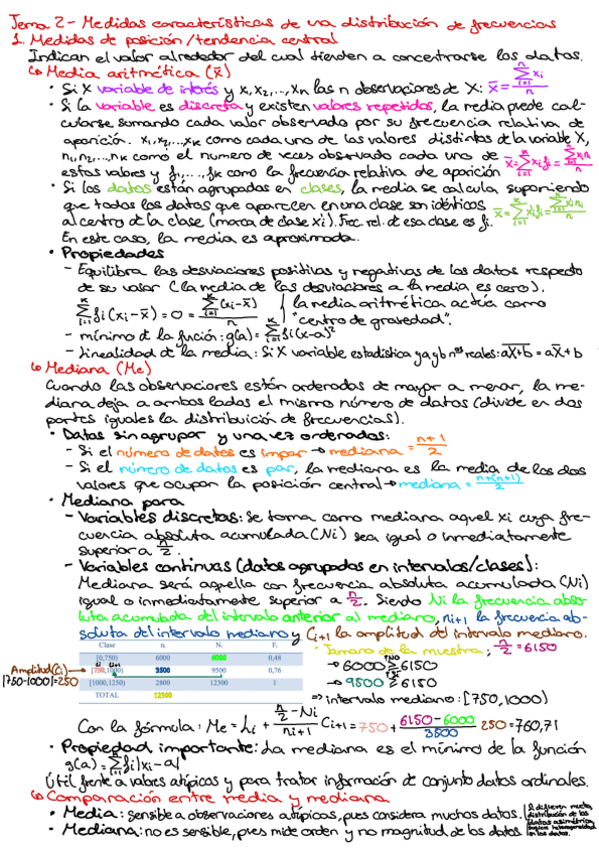 Tema 2 - Medidas características de una distribución de frecuencias
1. Medidas de posición/tendencia central
Indican el valor alrededor del cual tienden a concentrarse los datos.
↳ Media aritmética (x̄)
• Si X variable de interés y x₁, x₂, ..., xₙ las n observaciones de X: x̄ = Σᵢ₌₁ⁿ xᵢ / n
• Si la variable es discreta y existen valores repetidos, la media puede cal-
cularse sumando cada valor observado por su frecuencia relativa de
aparición. x₁, x₂, ..., xₖ como cada uno de los valores distintos de la variable X,
n₁, n₂, ..., nₖ como el numero de veces observado cada uno de
estos valores y f₁, ..., fₖ como la frecuencia relativa de aparición x̄ = Σᵢ₌₁ᵏ xᵢfᵢ = Σᵢ₌₁ᵏ xᵢnᵢ / n
• Si los datos están agrupados en clases, la media se calcula suponiendo
que todos los datos que aparecen en una clase son idénticos
al centro de la clase (marca de clase xᵢ). Frec. rel. de esa clase es fᵢ. x̄ = Σᵢ₌₁ᵏ xᵢfᵢ = Σᵢ₌₁ᵏ xᵢnᵢ / n
En este caso, la media es aproximada.
• Propiedades
- Equilibra las desviaciones positivas y negativas de los datos respecto
de su valor (la media de las desviaciones a la media es cero).
Σᵢ₌₁ᵏ fᵢ(xᵢ - x̄) = 0 = Σᵢ₌₁ᵏ (xᵢ - x̄) / n
la media aritmética actúa como
"centro de gravedad".
- mínimo de la función: g(a) = Σᵢ₌₁ᵏ fᵢ(x - a)²
- Linealidad de la media: Si X variable estadística y a y b nᵒˢ reales: aX+b = aX̄ + b
↳ Mediana (Me)
Cuando las observaciones están ordenadas de mayor a menor, la me-
diana deja a ambos lados el mismo número de datos (divide en dos
partes iguales la distribuición de frecuencias).
• Datos sin agrupar y una vez ordenados:
- Si el número de datos es impar → mediana = n+1 / 2
- Si el número de datos es par, la mediana es la media de los dos
valores que ocupan la posición central → mediana = n+(n+1) / 2
• Mediana para
- Variables discretas: Se toma como mediana aquel xᵢ cuya fre-
cuencia absoluta acumulada (Nᵢ) sea igual o inmediatamente
superior a n/2.
- Variables continuas (datos agrupados en intervalos/clases):
Mediana será aquella con frecuencia absoluta acumulada (Nᵢ)
igual o inmediatamente superior a n/2. Siendo Nᵢ la frecuencia abso-
luta acumulada del intervalo anterior al mediano, nᵢ₊₁ la frecuencia ab-
soluta del intervalo mediano y Cᵢ₊₁ la amplitud del intervalo mediano.
Clase nᵢ Nᵢ Fᵢ
[0,750) 6000 6000 0,48
[750,1000) 3500 9500 0,76
[1000,1250) 2800 12300 1
TOTAL 12300
Amplitud (Cᵢ)
|750-1000| = 250
• Tamaño de la muestra; n/2 = 6150
→ 6000 ≥ 6150 NO
→ 9500 ≥ 6150
⇒ intervalo mediano: [750,1000)
Con la fórmula: Me = Lᵢ + (n/2 - Nᵢ) / nᵢ₊₁ Cᵢ₊₁ = 750 + (6150 - 6000) / 3500 250 = 760,71
• Propiedad importante: La mediana es el mínimo de la función
g(a) = Σᵢ₌₁ⁿ fᵢ|xᵢ - a|
Útil frente a valores atípicos y para tratar información de conjunto datos ordinales.
↳ Comparación entre media y mediana
• Media: sensible a observaciones atípicas, pues considera muchos datos.
• Mediana: no es sensible, pues mide orden y no magnitud de los datos
Si difieren mucho,
distribución de los
datos asimétrica,
heterogeneidad
en los datos.